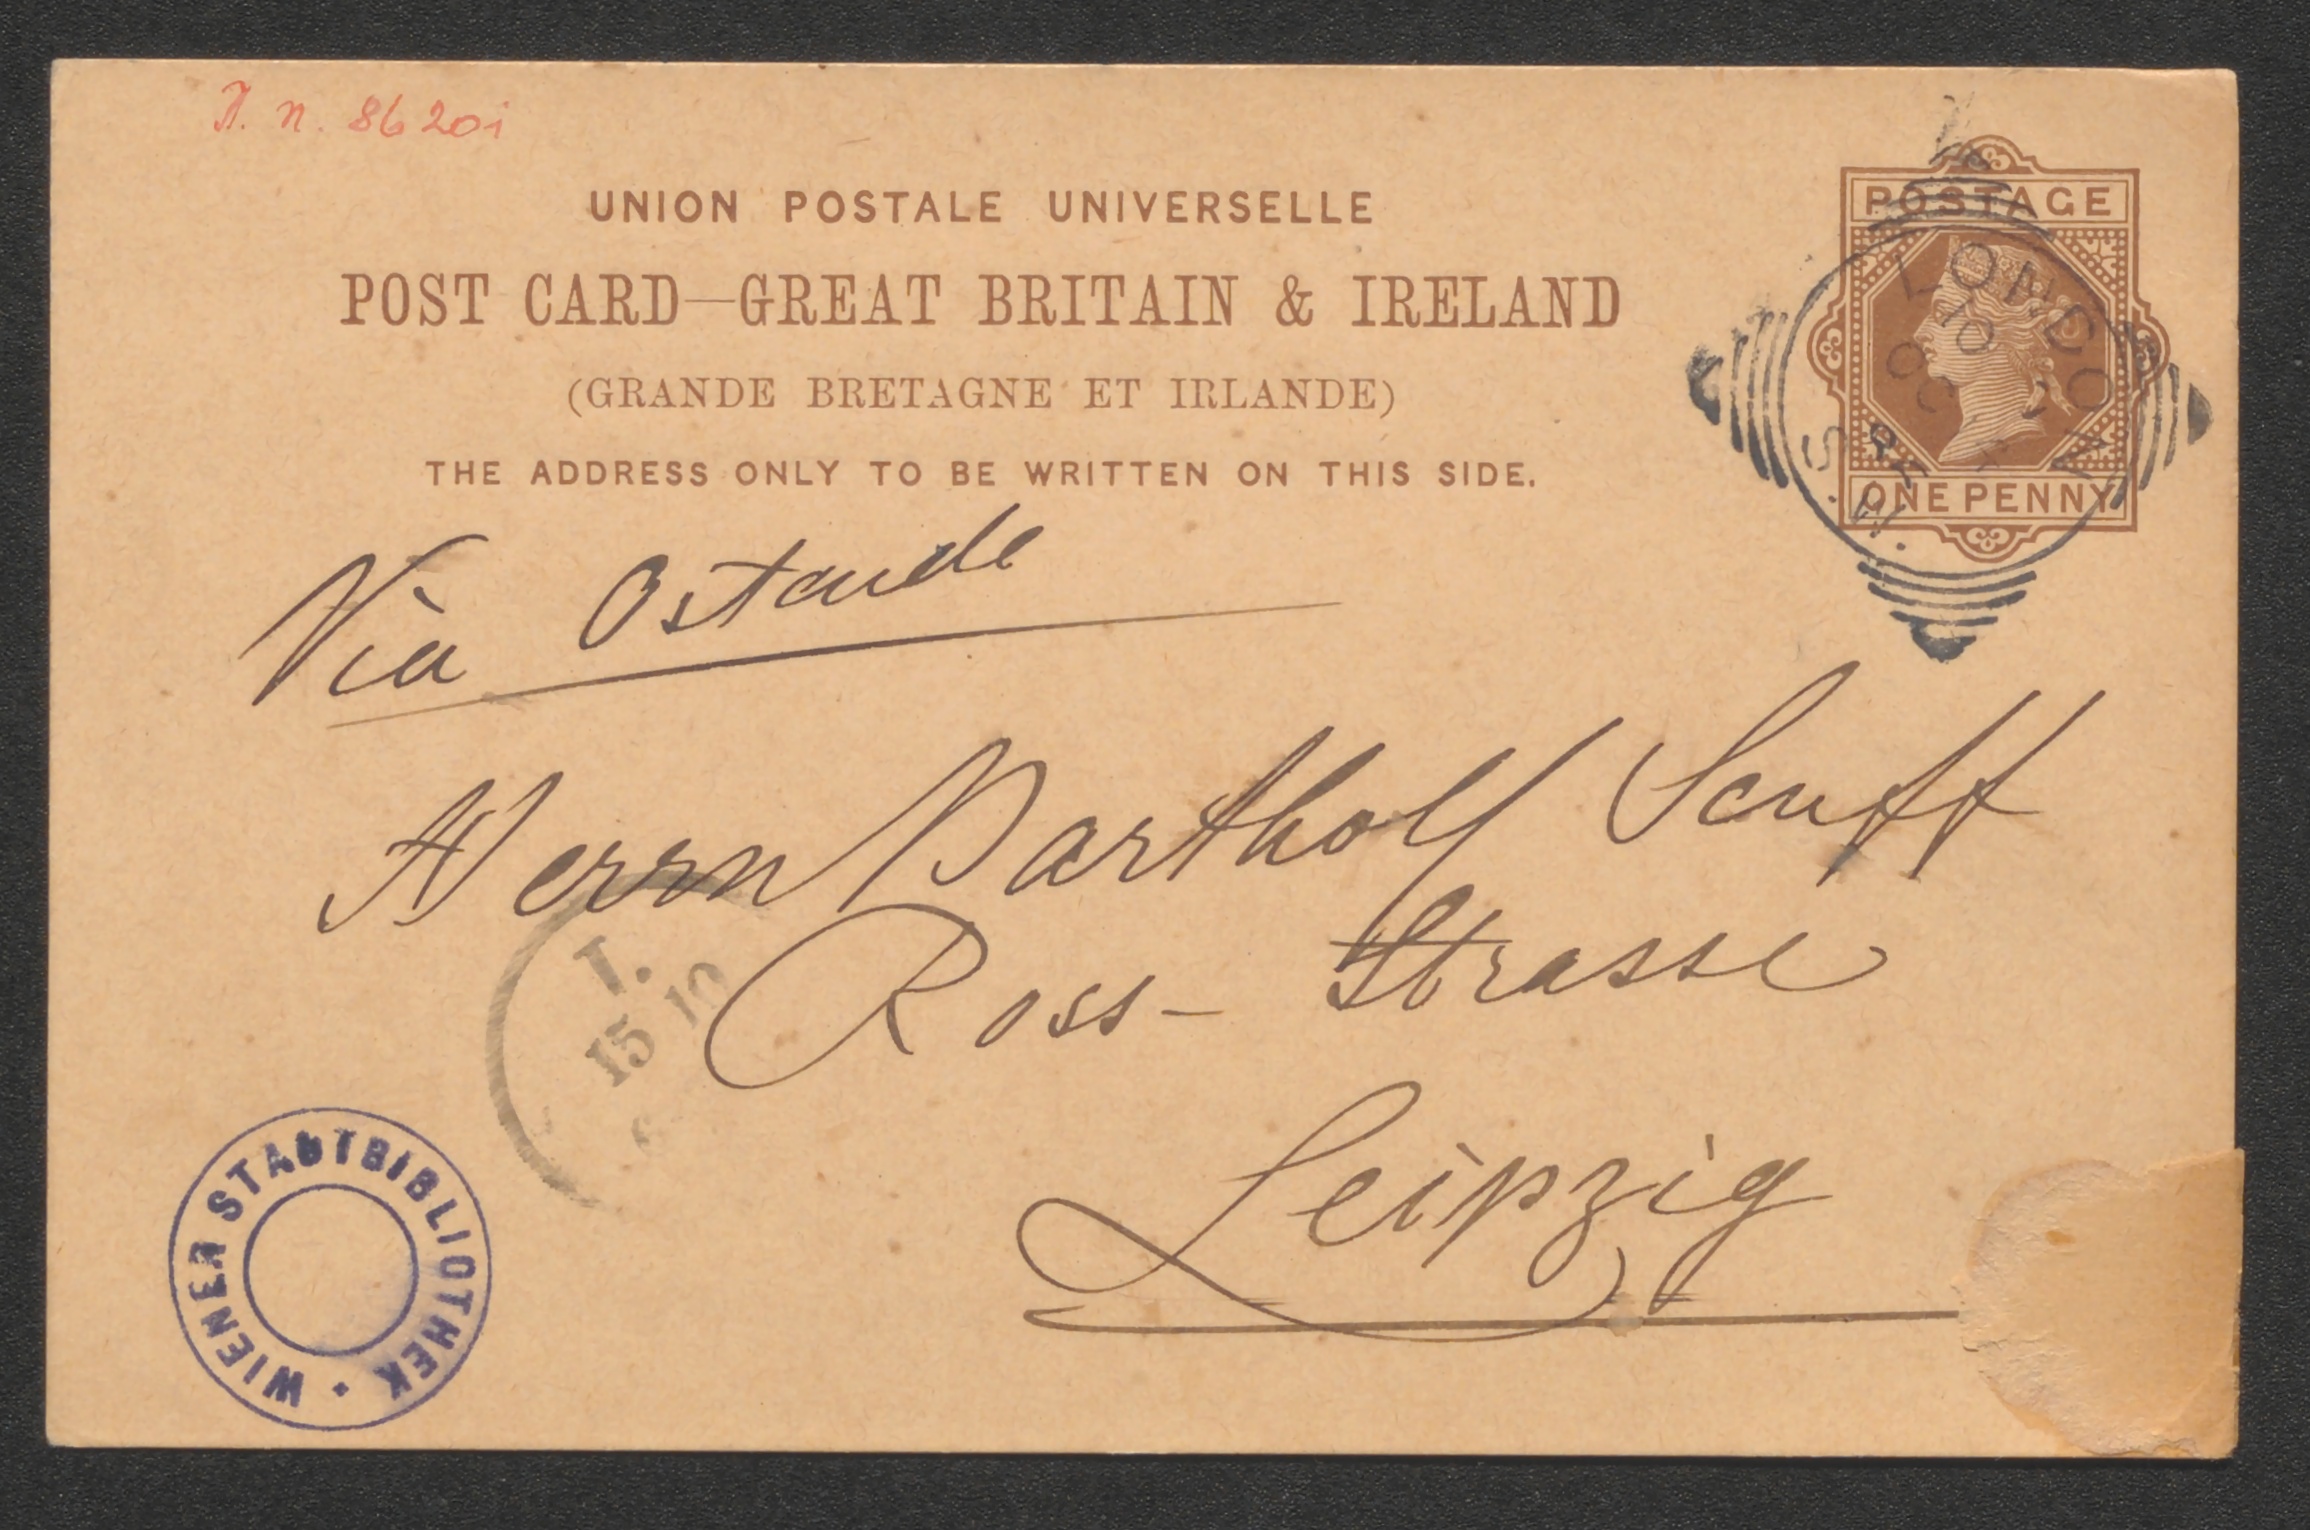 J. n. 86201
UNION POSTALE UNIVERSELLE
POST CARD—GREAT BRITAIN & IRELAND
(GRANDE BRETAGNE ET IRLANDE)
THE ADDRESS ONLY TO BE WRITTEN ON THIS SIDE.
POSTAGE
ONE PENNY
LONDON S.W.
OC
Via Ostende
Herrn Bartholf Senff
Ross-Strasse
Leipzig
I.
15 10
WIENER STADTBIBLIOTHEK